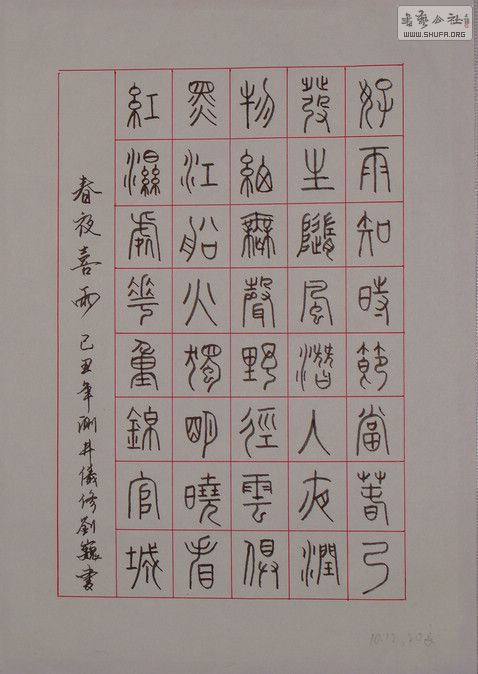 好雨知時節當春乃
發生隨風潛入夜潤
物細無聲野徑雲俱
黑江船火獨明曉看
紅濕處華重錦官城
春夜喜雨 己丑年 儀修劉巍書
書藝公社
WWW.SHUFA.ORG